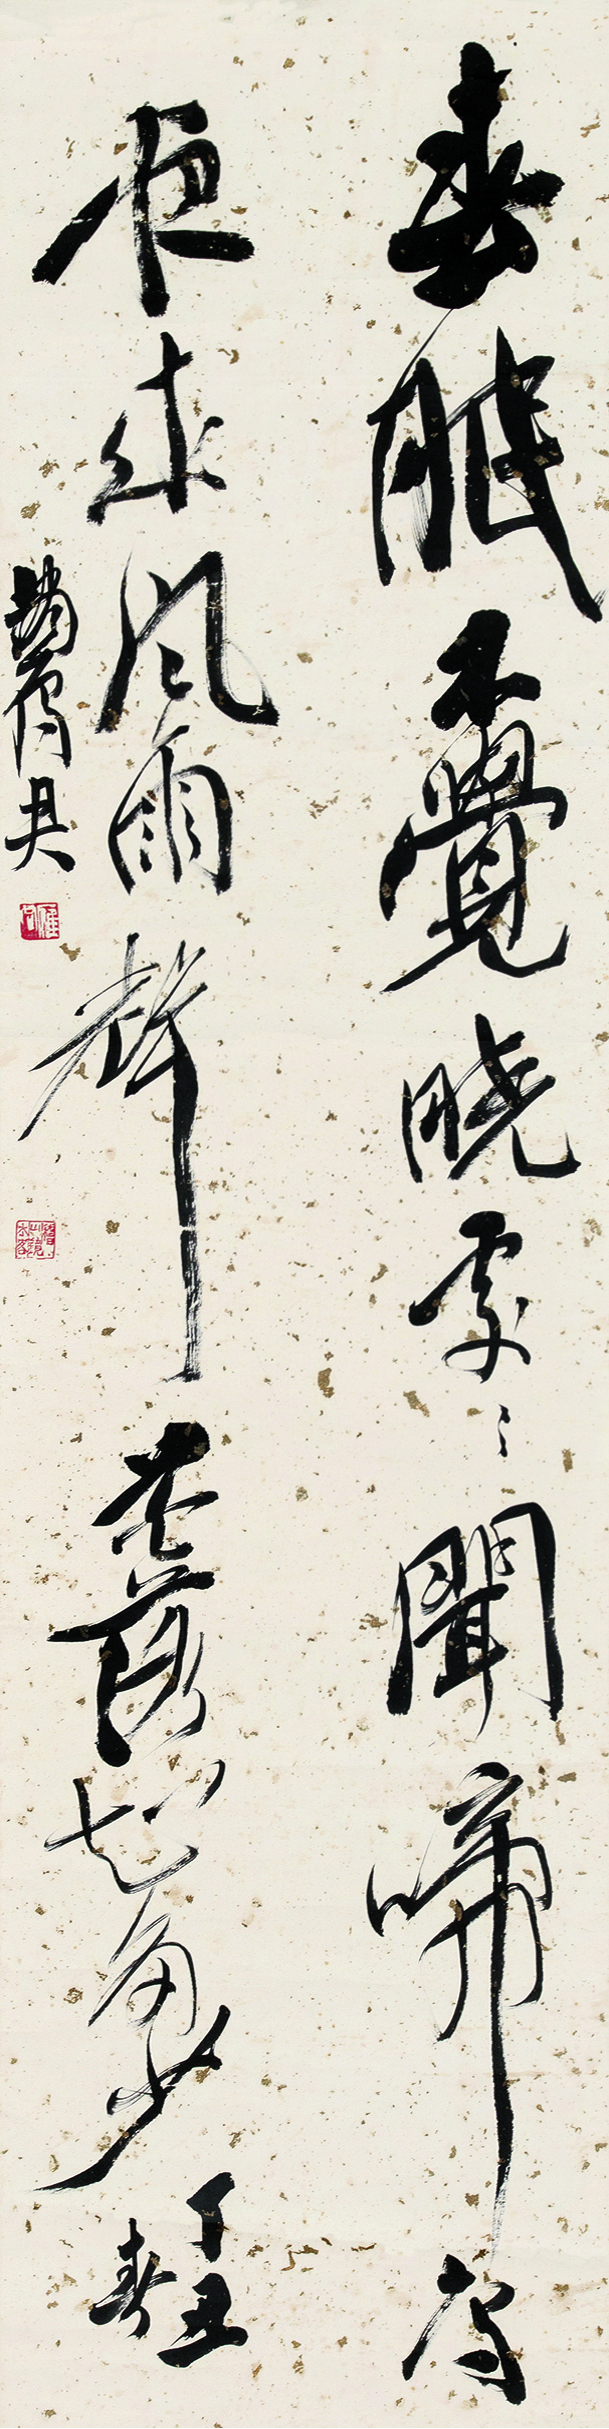 春眠不覺曉處〻聞啼鳥
夜來風雨聲花落知多少
丁丑
春
趙雁君